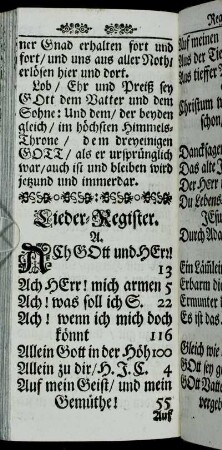 ner Gnad erhalten fort und
fort/ und uns aus aller Noth
erlösen hier und dort.
Lob/ Ehr und Preiß sey
GOtt dem Vatter und dem
Sohne: Und dem/ der beyden
gleich/ im höchsten Himmels-
Throne/ dem dreyeinigen
GOTT/ als er ursprünglich
war/ auch ist und bleiben wird
jetzund und immerdar.
Lieder-Register.
A.
ACh GOtt und HErr!
13
Ach HErr! mich armen 5
Ach! was soll ich S. 22
Ach! wenn ich mich doch
könnt 116
Allein Gott in der Höh 100
Allein zu dir/ H. J. C. 4
Auf mein Geist/ und mein
Gemüthe! 55
Auf
Reg
Auf meinen
Aus der Tie
Aus tieffer
Christum
schon,
Dancksagen
Das alte J
Der Herr
Du Lebens
JEsu
Durch Ada
Ein Lämlein
Erbarm di
Ermunter
Es ist das
Gleich wie
GOtt sey g
GOtt Vatte
vergeb